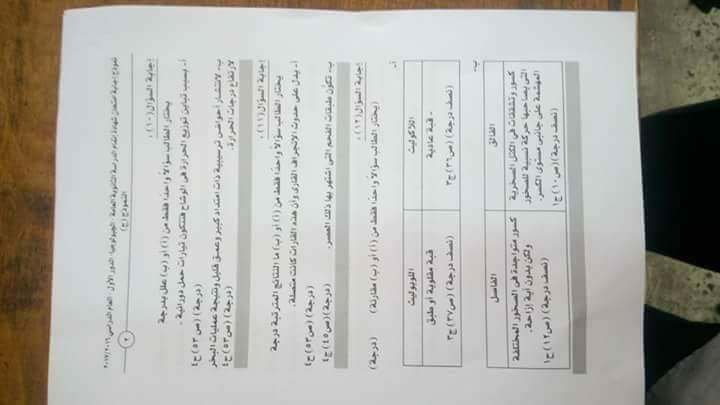 نموذج إجابة امتحان شهادة إتمام الدراسة الثانوية العامة الجيولوجيا الدور الأول العام الدراسى ٢٠١٦/٢٠١٧
النموذج (ج)
٣
إجابة السؤال (١٠) :
يختار الطالب سؤالاً واحدًا فقط من (أ) أو (ب) علل بدرجة
أ- بسبب تباين توزيع الحرارة فى الوشاح فتتكون تيارات حمل دورانية .
(درجة) (ص ٥٣) ج٤
ب- لانتشار أحواض ترسيبية ذات امتداد كبير وعمق قليل ونتيجة عمليات البخر
لارتفاع درجات الحرارة.
(درجة) (ص ٥٣) ج٤
إجابة السؤال (١١) :
يختار الطالب سؤالاً واحدًا فقط من (أ) أو (ب) ما النتائج المترتبة درجة
أ- يدل على حدوث الانجراف القارى وأن هذه القارات كانت متصلة.
(درجة) (ص ٥٣) ج٤
ب- تكون طبقات الفحم التى اشتهر بها ذلك العصر.
(درجة) (ص ٤٥) ج٤
إجابة السؤال (١٢) :
(يختار الطالب سؤالاً واحدًا فقط من (أ) أو (ب) مقارنة ) (درجة)
أ-
اللاكوليث
اللوبوليث
- قبة عادية
قبة مقلوبة أو طبق
(نصف درجة) (ص ٣٦) ج٣
(نصف درجة) (ص ٣٧) ج٣
ب-
الفالق
الفاصل
كسور وتشققات فى الكتل الصخرية
التى يصاحبها حركة نسبية للصخور
المهشمة على جانبى مستوى الكسر.
(نصف درجة) (ص ١٠) ج١
كسور متواجدة فى الصخور المختلفة
ولكن بدون أية إزاحة.
(نصف درجة) (ص ١٢) ج١